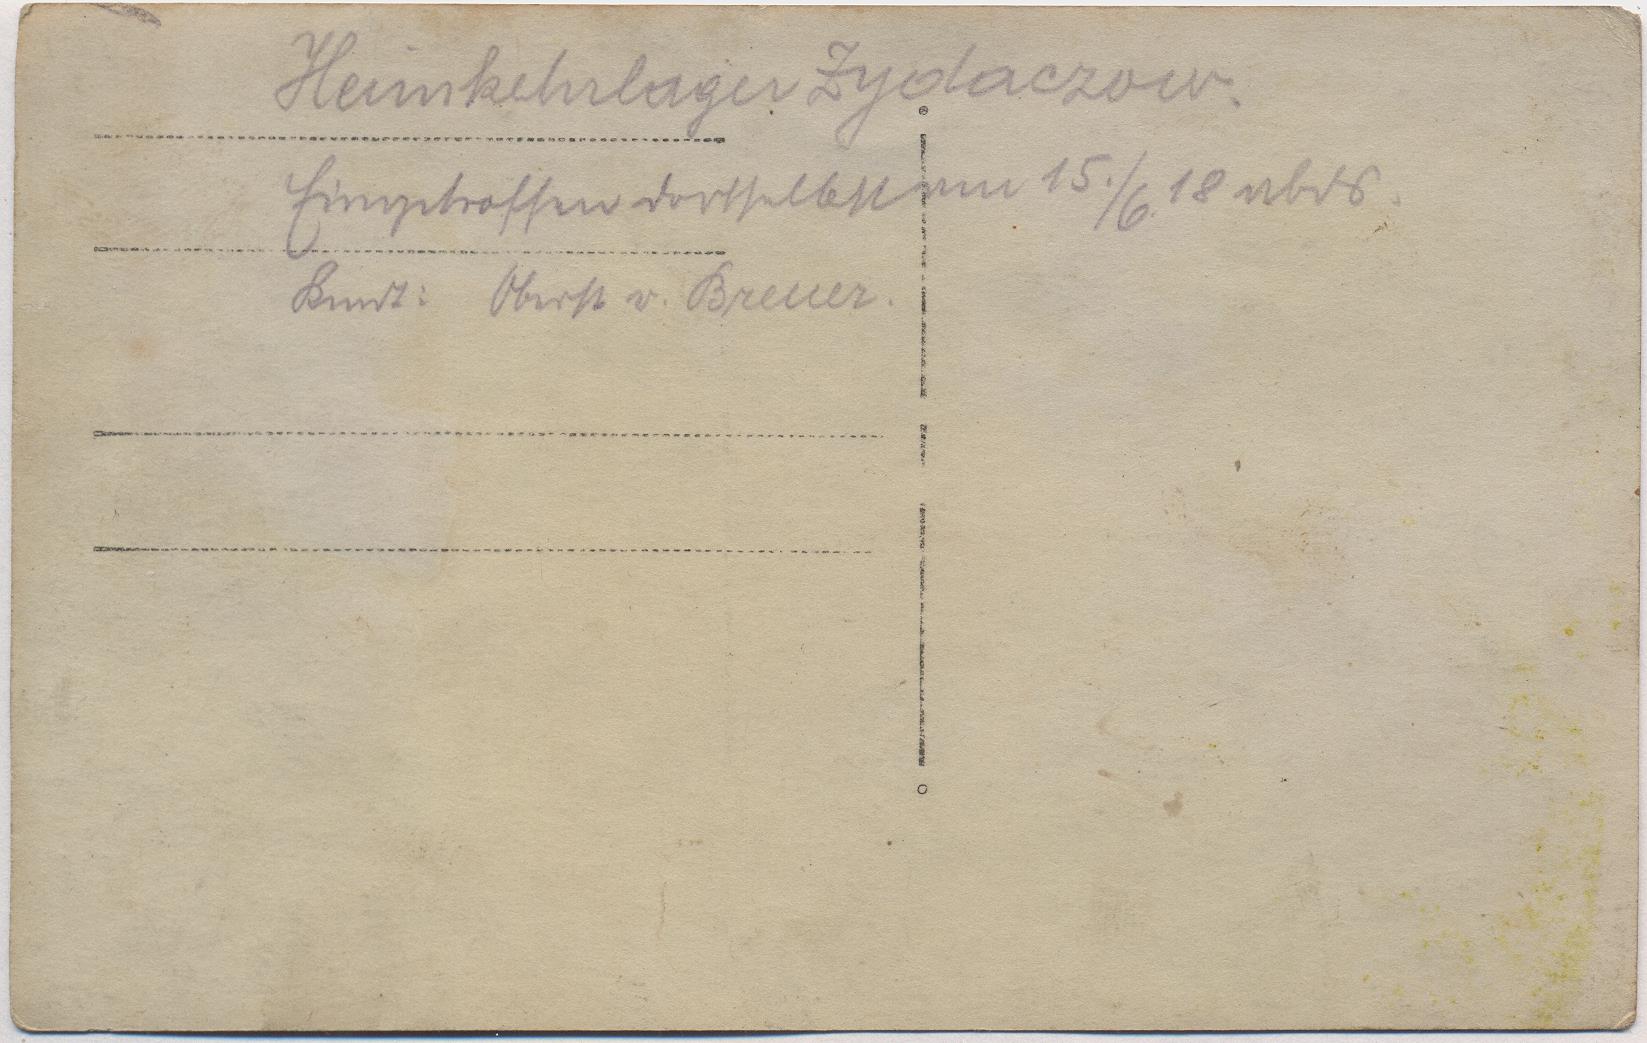 Heimkehrlager Zydaczow.
Eingetroffen dortselbst am 15./6. 18 abds.
Kmdt: Oberst v. Breuer.